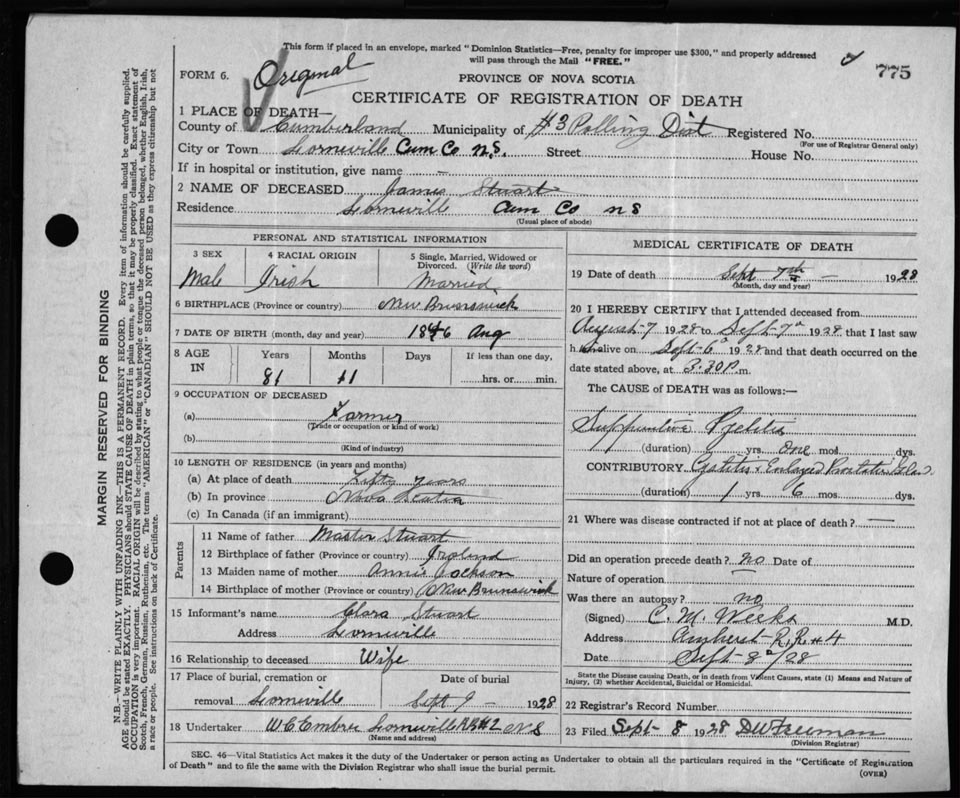 This form if placed in an envelope, marked "Dominion Statistics—Free, penalty for improper use $300," and properly addressed
will pass through the Mail "FREE."
775
FORM 6. Original
PROVINCE OF NOVA SCOTIA
CERTIFICATE OF REGISTRATION OF DEATH
1 PLACE OF DEATH—
County of Cumberland Municipality of #3 Polling Dist Registered No.
(For use of Registrar General only)
City or Town Lorneville Cum Co N.S. Street House No.
If in hospital or institution, give name —
2 NAME OF DECEASED James Stuart
Residence Lorneville Cum Co NS
(Usual place of abode)
PERSONAL AND STATISTICAL INFORMATION
3 SEX
Male
4 RACIAL ORIGIN
Irish
5 Single, Married, Widowed or
Divorced. (Write the word)
Married
6 BIRTHPLACE (Province or country) New Brunswick
7 DATE OF BIRTH (month, day and year) 1846 Aug
8 AGE
IN
Years
81
Months
11
Days
If less than one day,
hrs. or min.
9 OCCUPATION OF DECEASED
(a) Farmer
(Trade or occupation or kind of work)
(b)
(Kind of industry)
10 LENGTH OF RESIDENCE (in years and months)
(a) At place of death Fifty years
(b) In province Nova Scotia
(c) In Canada (if an immigrant)
Parents
11 Name of father Master Stuart
12 Birthplace of father (Province or country) Ireland
13 Maiden name of mother Annie Jackson
14 Birthplace of mother (Province or country) New Brunswick
15 Informant's name Clara Stuart
Address Lorneville
16 Relationship to deceased Wife
17 Place of burial, cremation or
removal Lorneville
Date of burial
Sept 9 - 1928
18 Undertaker W.C. Embree Lorneville RR#2 NS
(Name and address)
MEDICAL CERTIFICATE OF DEATH
19 Date of death Sept 7th — 1928
(Month, day and year)
20 I HEREBY CERTIFY that I attended deceased from
August 7 1928 to Sept 7 1928 that I last saw
h alive on Sept 6 1928 and that death occurred on the
date stated above, at 3.30 P. m.
The CAUSE of DEATH was as follows:—
Suppurative Pyelitis
(duration) yrs. one mos. dys.
CONTRIBUTORY Cystitis & Enlarged Prostatic
(duration) 1 yrs. 6 mos. dys.
21 Where was disease contracted if not at place of death? —
Did an operation precede death? no Date of
Nature of operation
Was there an autopsy? no
(Signed) C. M. M.D.
Address Amherst R.R. #4
Date Sept 8/28
State the Disease causing Death, or in death from Violent Causes, state (1) Means and Nature of
Injury, (2) whether Accidental, Suicidal or Homicidal.
22 Registrar's Record Number
23 Filed Sept 8 1928 DW Freeman
(Division Registrar)
SEC. 46—Vital Statistics Act makes it the duty of the Undertaker or person acting as Undertaker to obtain all the particulars required in the "Certificate of Registration
of Death" and to file the same with the Division Registrar who shall issue the burial permit.
(OVER)
MARGIN RESERVED FOR BINDING
N.B.—WRITE PLAINLY WITH UNFADING INK—THIS IS A PERMANENT RECORD. Every item of information should be carefully supplied.
AGE should be stated EXACTLY. PHYSICIANS should STATE CAUSE OF DEATH in plain terms, so that it may be properly classified. Exact statement of
OCCUPATION is very important. RACIAL ORIGIN will be described by stating to what people or tongue the deceased person belonged, whether English, Irish,
Scotch, French, German, Russian, Ruthenian, etc. The terms "AMERICAN" or "CANADIAN" SHOULD NOT BE USED as they express citizenship but not
a race or people. See instructions on back of Certificate.